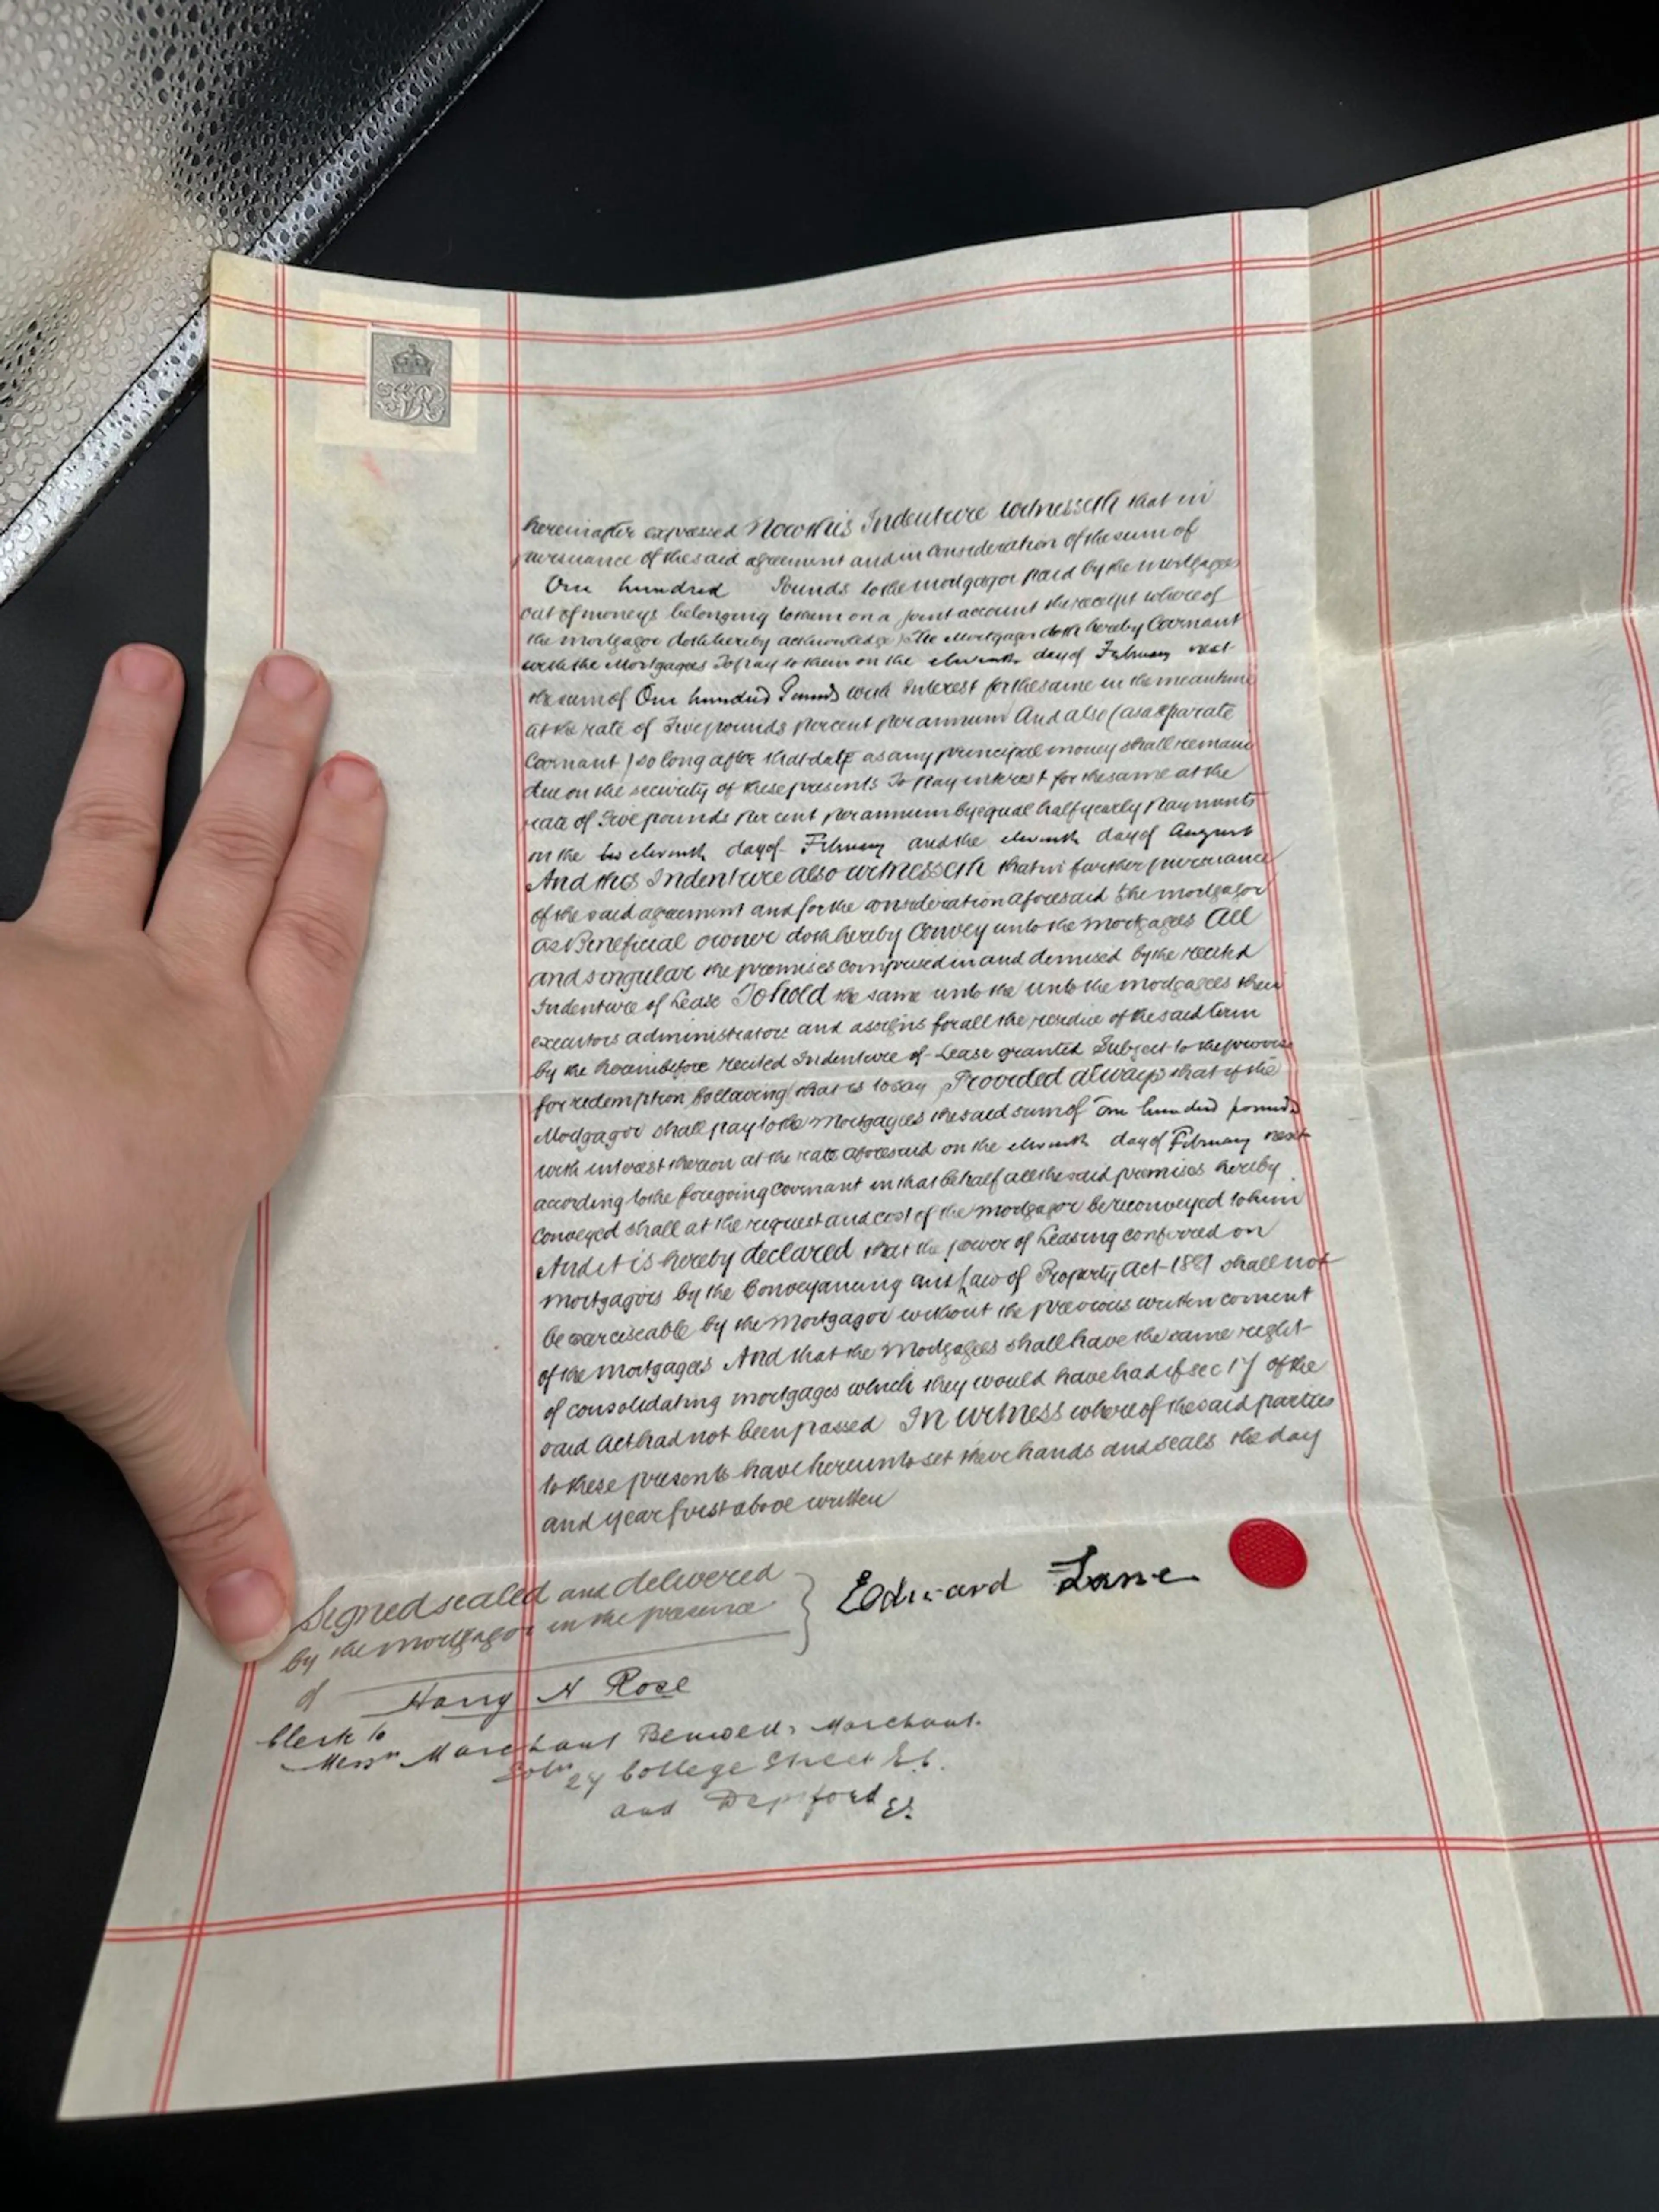 GR
hereinafter expressed Now this Indenture witnesseth that in
pursuance of the said agreement and in consideration of the sum of
One hundred Pounds to the mortgagor paid by the mortgagees
out of moneys belonging to them on a joint account the receipt whereof
the mortgagor doth hereby acknowledge) The Mortgagor doth hereby Covenant
with the Mortgagees To pay to them on the eleventh day of February next
the sum of One hundred Pounds with Interest for the same in the meantime
at the rate of Five pounds per cent per annum And also (as a separate
Covenant) so long after that date as any principal money shall remain
due on the security of these presents To pay interest for the same at the
rate of Five pounds per cent per annum by equal half yearly payments
on the eleventh day of February and the eleventh day of August
And this Indenture also witnesseth that in further pursuance
of the said agreement and for the consideration aforesaid the mortgagor
as Beneficial owner doth hereby Convey unto the mortgagees All
and singular the premises comprised in and demised by the recited
Indenture of Lease To hold the same unto the unto the mortgagees their
executors administrators and assigns for all the residue of the said term
by the hereinbefore recited Indenture of Lease granted Subject to the proviso
for redemption following (that is to say) Provided always that if the
Mortgagor shall pay to the Mortgagees the said sum of One hundred pounds
with interest thereon at the rate aforesaid on the eleventh day of February next
according to the foregoing covenant in that behalf all the said premises hereby
conveyed shall at the request and cost of the mortgagor be reconveyed to him
And it is hereby declared that the power of Leasing conferred on
mortgagors by the Conveyancing and Law of Property Act 1881 shall not
be exerciseable by the Mortgagor without the previous written consent
of the mortgagees And that the Mortgagees shall have the same right
of consolidating mortgages which they would have had if sec 17 of the
said Act had not been passed In witness whereof the said parties
to these presents have hereunto set their hands and seals the day
and year first above written
Signed sealed and delivered
by the mortgagor in the presence
Edward Lane
of Harry N Rose
Clerk to
Messrs Marchant Benwell & Marchant.
Solrs 27 College Street E.C.
and Deptford SE.